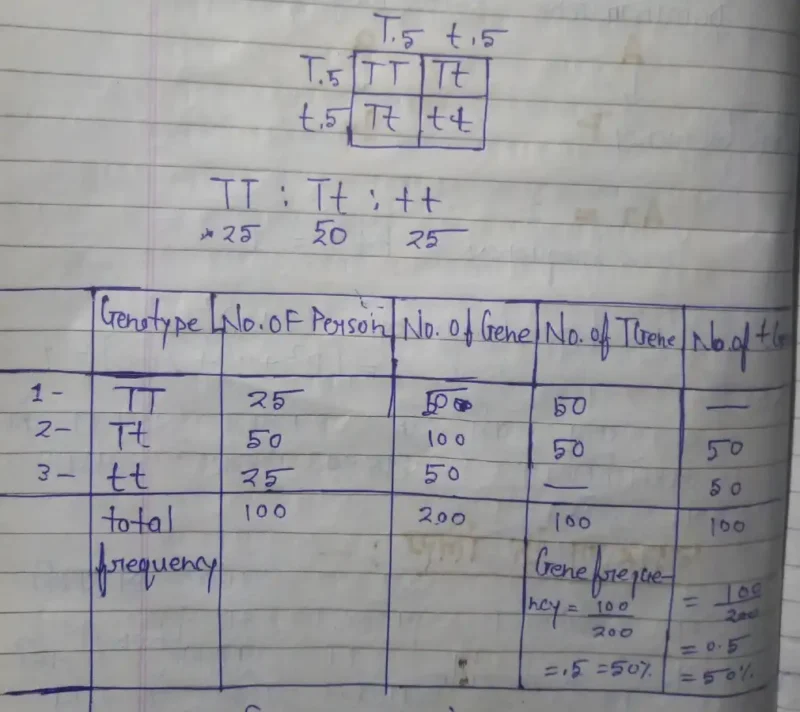 T.5 t.5
T.5 TT Tt
t.5 Tt tt
TT : Tt : tt
25 50 25
Genotype No. OF Person No. of Gene No. of TGene No. of t
1- TT 25 50 50 —
2- Tt 50 100 50 50
3- tt 25 50 — 50
total 100 200 100 100
frequency Gene freque-
ncy = 100/200 = 100/200
= .5 = 50% = 0.5
= 50%